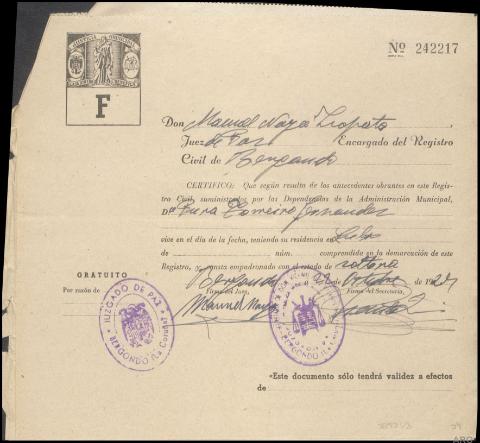 Nº 242217
F
Don Manuel Naya
Juez de Paz Encargado del Registro
Civil de Bergondo
CERTIFICO: Que según resulta de los antecedentes obrantes en este Regis-
tro Civil, suministrados por las Dependencias de la Administración Municipal,
Dª Pura Fernandez
vive en el día de la fecha, teniendo su residencia en
de núm. comprendida en la demarcación de este
Registro, y consta empadronado con el estado de soltera
GRATUITO
Por razón de
Bergondo de Octubre de 19
Firma del Juez, Firma del Secretario,
Manuel Naya
JUZGADO DE PAZ
BERGONDO (La Coruña)
«Este documento sólo tendrá validez a efectos
de